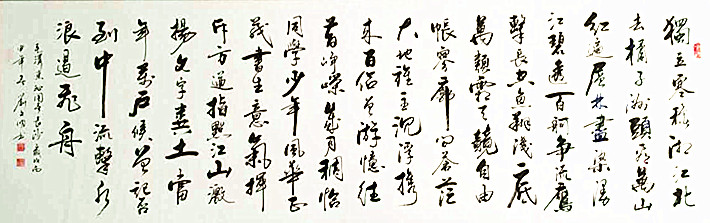 獨立寒秋湘江北
去橘子洲頭看萬山
紅遍層林盡染漫
江碧透百舸爭流鷹
擊長空魚翔淺底
萬類霜天競自由
悵寥廓問蒼茫
大地誰主沉浮攜
來百侶曾游憶往
昔崢嶸歲月稠恰
同學少年風華正
茂書生意氣揮
斥方遒指點江山激
揚文字糞土當
年萬戶侯曾記否
到中流擊水
浪遏飛舟
毛澤東沁園春長沙